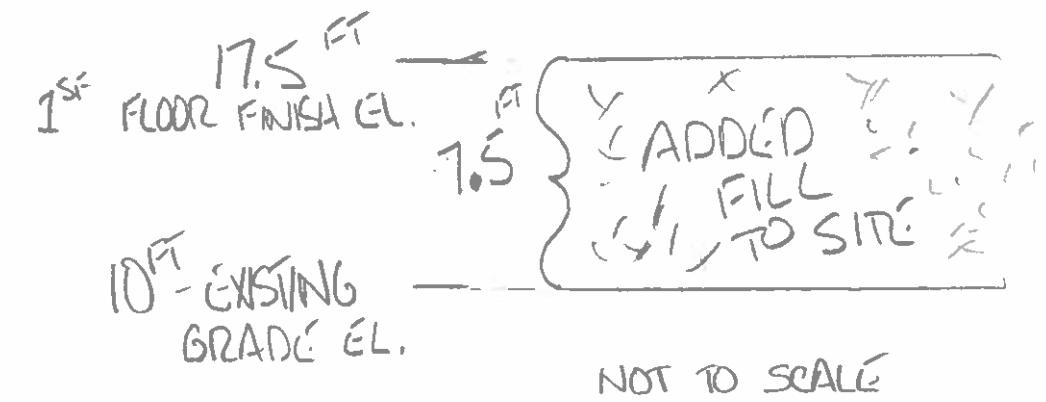 17.5 FT
1ST FLOOR FINISH EL.
7.5 FT
ADDED
FILL
TO SITE
10 FT - EXISTING
GRADE EL.
NOT TO SCALE